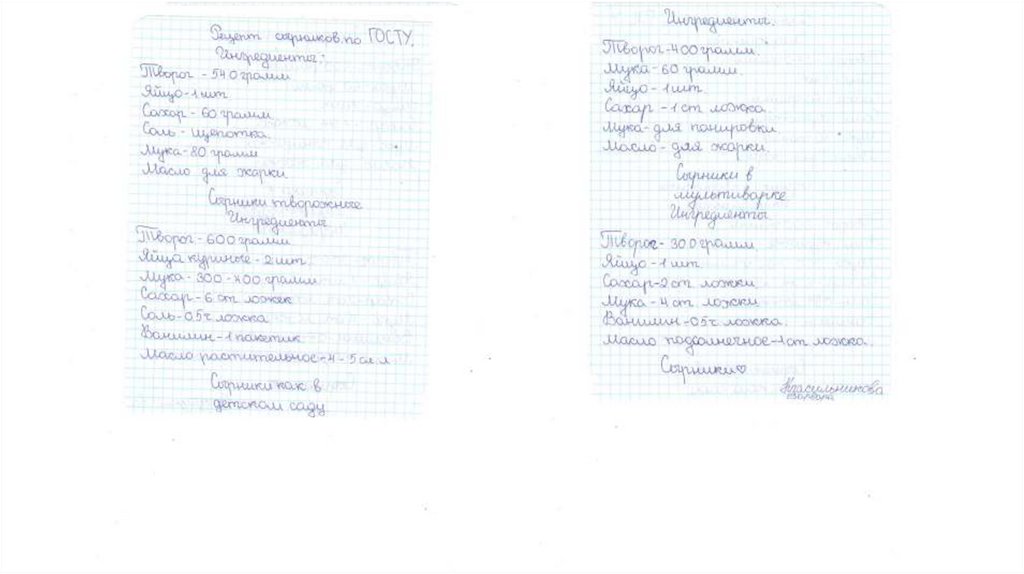 Рецепт сырников.по ГОСТУ.
Ингредиенты:
Творог - 540 грамм
Яйцо-1 шт
Сахар - 60 грамм
Соль - щепотка.
Мука-80 грамм
Масло для жарки
Сырники творожные
Ингредиенты
Творог-600 грамм
Яйца куриные - 2 шт.
Мука-300-400 грамм
Сахар-6 ст ложек
Соль-0.5ч ложка
Ванилин-1 пакетик
Масло растительное-4-5 ст л
Сырники как в
детском саду
Ингредиенты.
Творог-400 грамм.
Мука-60 грамм.
Яйцо-1 шт
Сахар-1 ст ложка
Мука-для панировки
Масло-для жарки.
Сырники в
мультиварке
Ингредиенты
Творог-300 грамм
Яйцо-1 шт
Сахар-2 ст ложки
Мука-4 ст ложки
Ванилин-05ч ложка.
Масло подсолнечное-1 ст ложка.
Сырники♡
Красильникова
Варвара